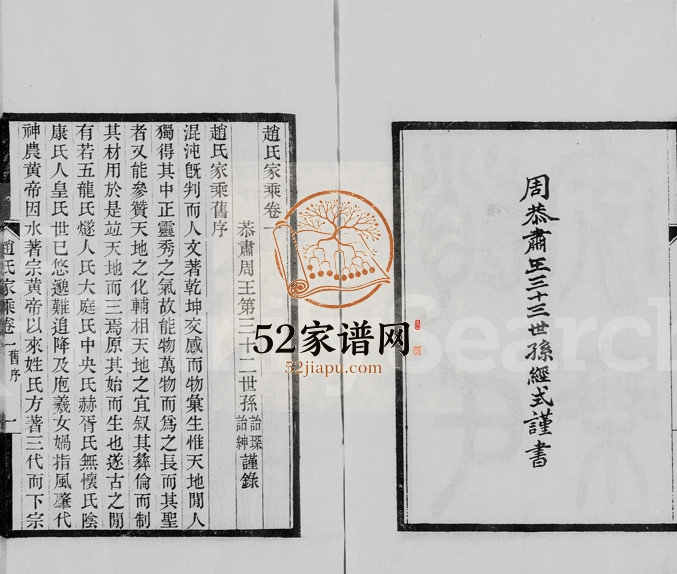 周恭肅王三十三世孫經式謹書
趙氏家乘卷
恭肅周王第三十二世孫詒琛詒紳謹錄
趙氏家乘舊序
混沌旣判而人文著乾坤交感而物彙生惟天地閒人
獨得其中正靈秀之氣故能物萬物而爲之長而其聖
者又能參贊天地之化輔相天地之宜叙其彝倫而制
其材用於是竝天地而三焉原其始而生也邃古之閒
有若五龍氏燧人氏大庭氏中央氏赫胥氏無懷氏陰
康氏人皇氏世已悠邈難追降及庖羲女媧指風肇代
神農黃帝因水著宗黃帝以來姓氏方著三代而下宗
趙氏家乘卷一 舊序 一
52家谱网
52jiapu.com
Search